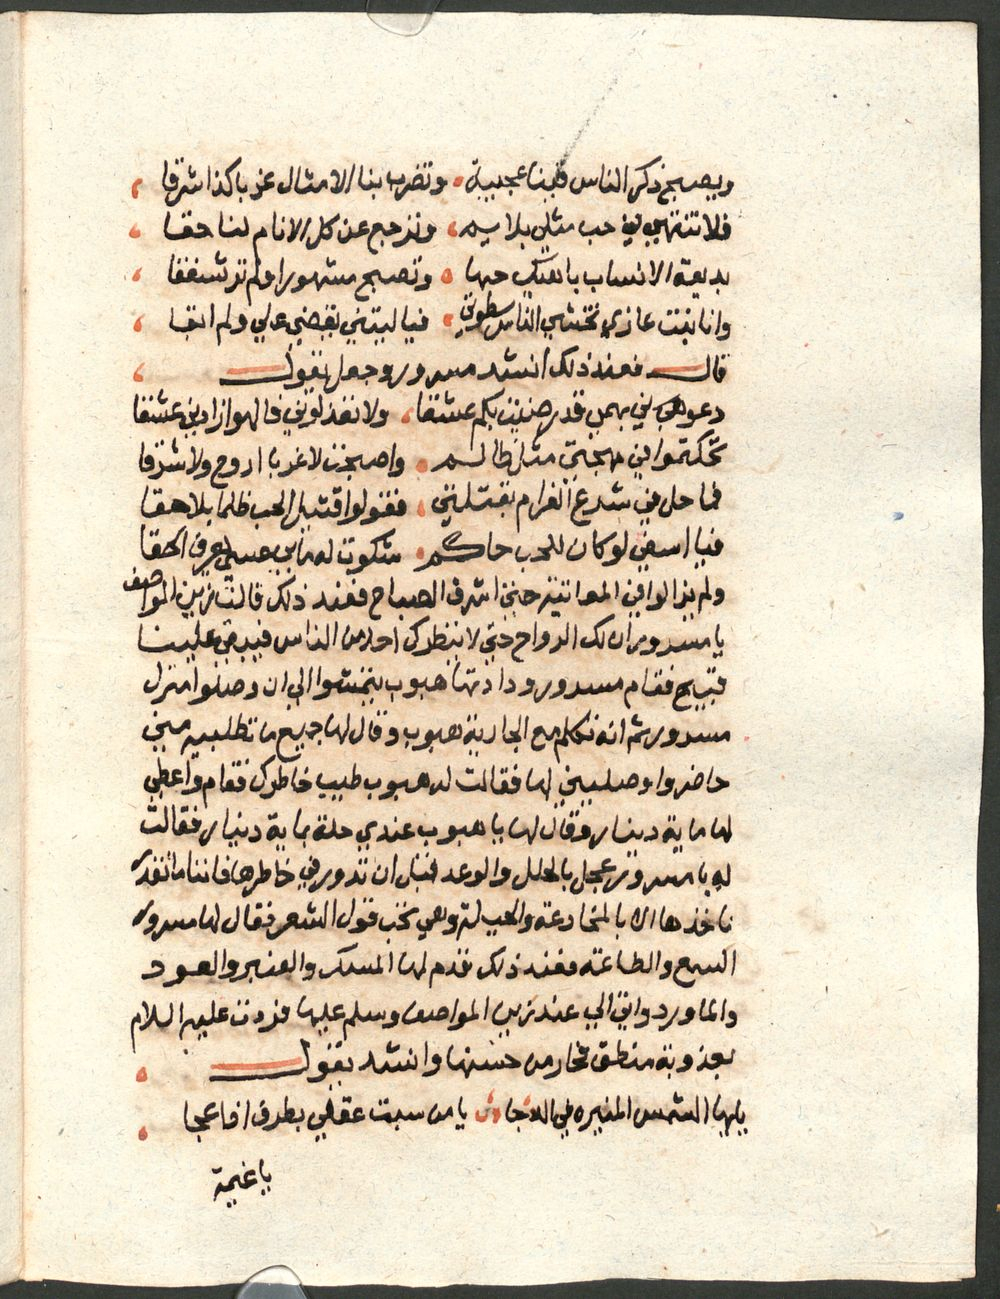 ويصبح ذكر الناس فينا عجيبة وتضرب بنا الامثال غربا كذا شرقا
فلا تنتهي في حب مثلي بلا سيم وترجع عن كل الانام لنا حقا
بديعة الانساب باتيك حبها وتصبح مشهورا ولم تر شفقا
وانا بنت عازي تختشي الناس سطوتي فيا ليتني يقضي علي ولم ابقا
قال فعند ذلك انشد مسرور وجعل يقول
دعوهي ني بهمي قد رضيت بكم عشقا ولا تعذلوني فالهوا زادني عشقا
تحكمتموا في مهجتي مثل ظالم واصبحت لا غربا اروح ولا شرقا
فما حل في شرع الغرام بقتلتي فقولوا قتيل الحب ظلما بلا حقا
فيا اسفي لو كان للحب حاكم شكوت له ما بي عسى يعرف الحقا
ولم يزالوا في المعاتبة حتى اشرق الصباح فعند ذلك قالت زين المواصف
يا مسرور ان لك الرواح حتى لا ينظرك احد من الناس فيبقى علينا
قبيح فقام مسرور ودادتها هبوب يتمشوا الى ان وصلوا منزل
مسرور ثم انه تكلم مع الجارية هبوب وقال لها جميع ما تطلبيه مني
حاضر واوصليني لها فقالت له هبوب طيب خاطرك فقام واعطى
لها ماية دينار وقال لها يا هبوب عندي حلة بماية دينار فقالت
له يا مسرور عجل بالحلل والوعد قبل ان تدور في خاطرها فاننا ما نقدر
ناخذها الا بالمخادعة والحيلة وهي تحب قول الشعر فقال لها مسرور
السمع والطاعة فعند ذلك قدم لها المسك والعنبر والعود
والماورد واتى الى عند زين المواصف وسلم عليها فردت عليه السلام
بعذوبة منطق فحار من حسنها وانشد يقول
يايها الشمس المنيره في الدجا يا من سبت عقلي بطرف ادعجا
يا غيمة